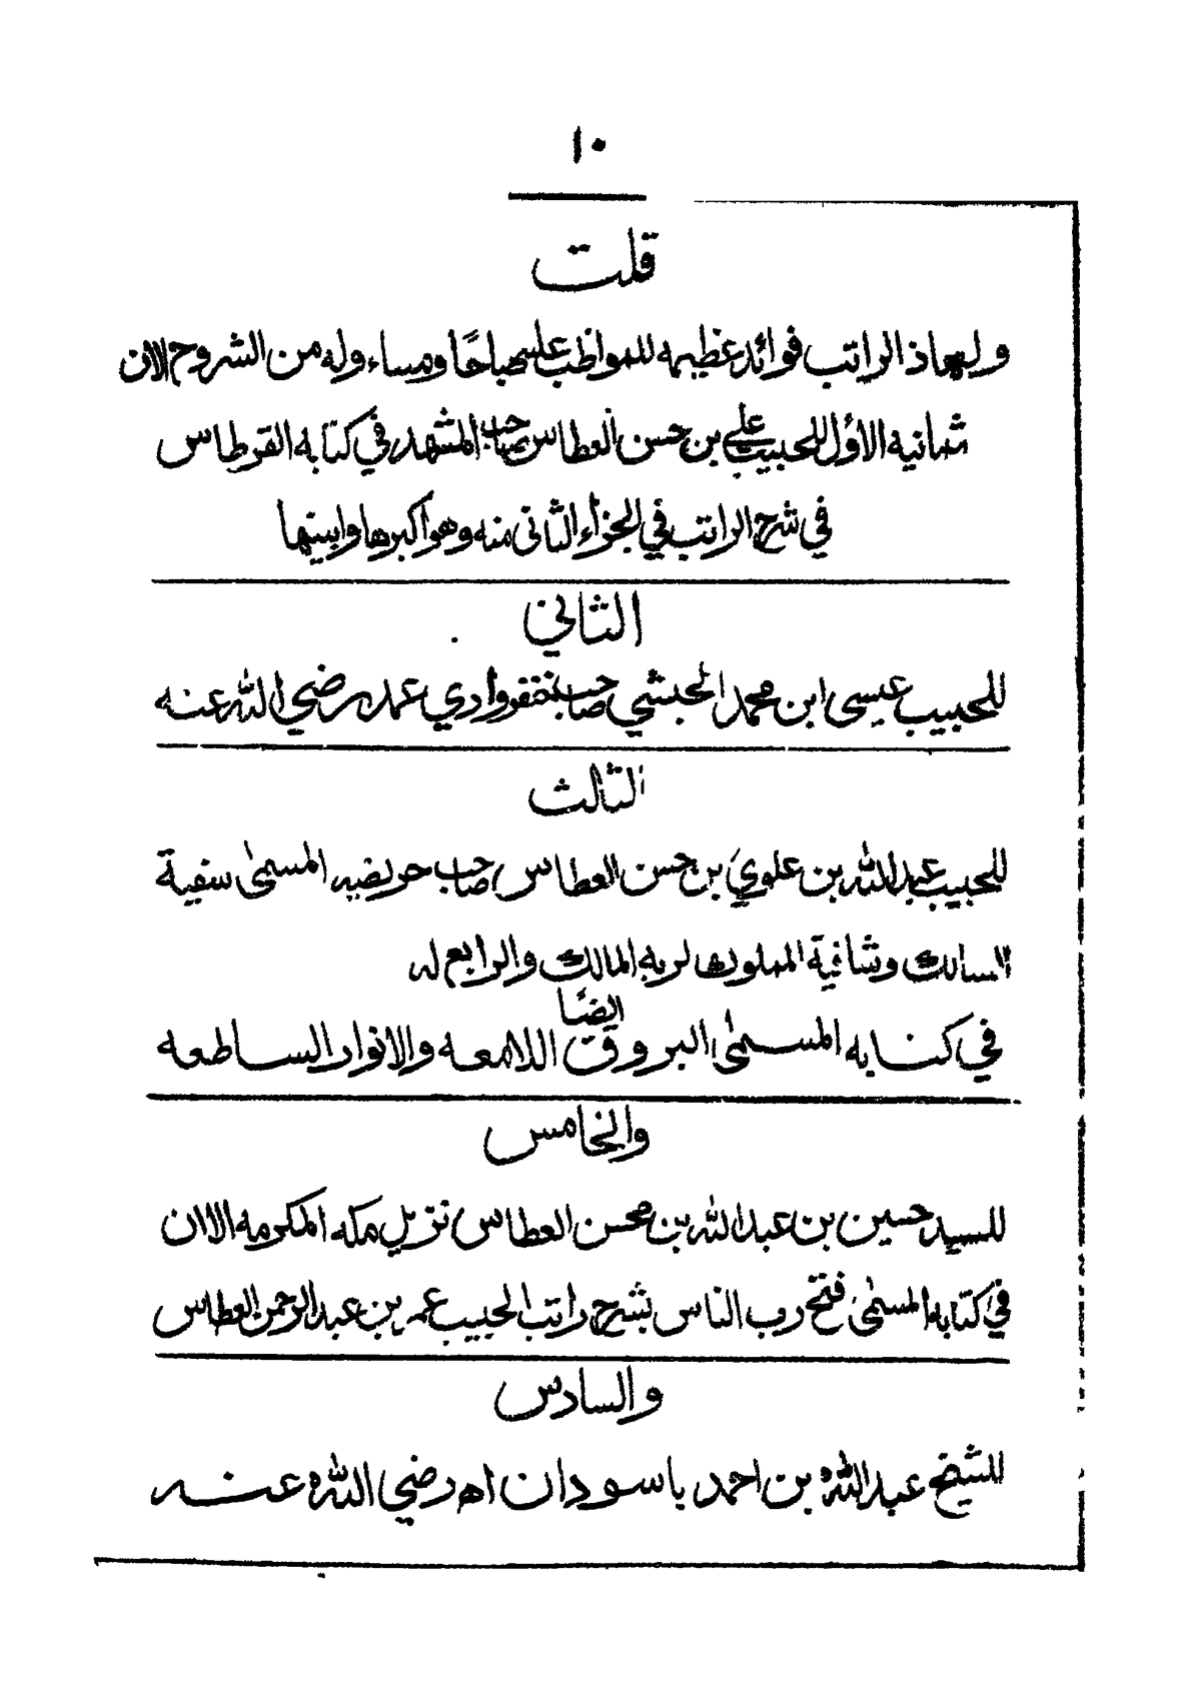 ١٠
قلت
ولهاذ الراتب فوائد عظيمه للمواظب عليه صباحًا ومساء وله من الشروح الان
ثمانيه الاوّل للحبيب علي بن حسن العطاس صاحب المشهد في كتابه القرطاس
في شرح الراتب في الجزاء الثاني منه وهو اكبرها وابينها
الثاني
للحبيب عيسى ابن محمد الحبشي صاحب خنفر وادي عمد رضي الله عنه
الثالث
للحبيب عبدالله بن علوي بن حسن العطاس صاحب حريضه المسمى سفية
السالك وشانية المملوك لربه المالك والرابع له
ايضًا
في كتابه المسمى البروق اللامعه والانوار الساطعه
والخامس
للسيد حسين بن عبدالله بن محسن العطاس نزيل مكه المكرمه الاان
في كتابه المسمى فتح رب الناس بشرح راتب الحبيب عمر بن عبدالرحمن العطاس
والسادس
للشيخ عبدالله بن احمد باسودان اه رضي الله عنه